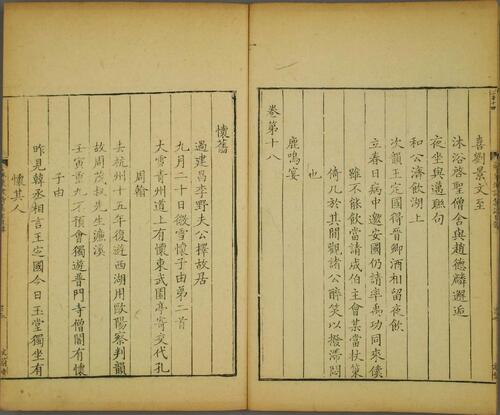 喜劉景文至
沐浴啓聖僧舍與趙德麟邂逅
夜坐與邁聯句
和公濟飲湖上
次韻王定國得晉卿酒相留夜飲
立春日病中邀安國仍請率禹功同來僕
雖不能飲當請成伯主會某當杖策
倚几於其間觀諸公醉笑以撥滯悶
也
鹿鳴宴
卷第十八
懷舊
過建昌李野夫公擇故居
九月二十日微雪懷子由第二首
大雪青州道上有懷東武園亭寄交代孔
周翰
去杭州十五年復遊西湖用歐陽察判韻
故周茂叔先生濂溪
壬寅重九不預會獨遊普門寺僧閣有懷
子由
昨見韓丞相言王定國今日玉堂獨坐有
懷其人